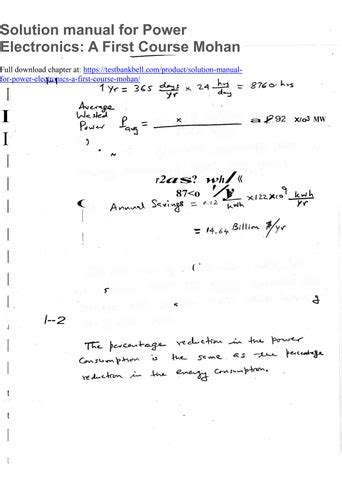 Solution manual for Power
Electronics: A First Course Mohan
Full download chapter at: https://testbankbell.com/product/solution-manual-
for-power-electronics-a-first-course-mohan/
1 Yr = 365 days/yr × 24 hrs/day = 8760 hrs
Average
Wasted
Power P avg = x 92 x10³ MW
Annual Savings = 0.12 $/kwh ×122×10⁹ kwh/yr
= 14.64 Billion $/yr
1-2
The percentage reduction in the power
consumption is the same as the percentage
reduction in the energy consumption.